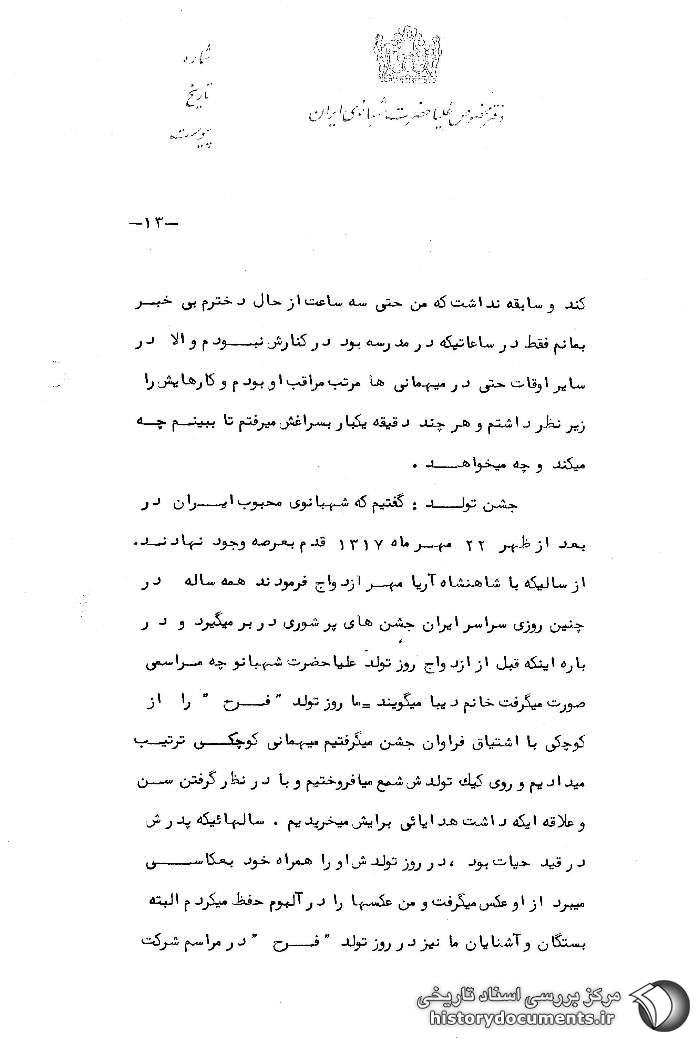 شماره
تاریخ
پیوست
دفتر مخصوص علیاحضرت شهبانوی ایران
–۱۳–
کند و سابقه نداشت که من حتی سه ساعت از حال دخترم بی خبر
بمانم فقط در ساعاتیکه در مدرسه بود در کنارش نبودم و الا در
سایر اوقات حتی در میهمانی ها مرتب مراقب او بودم و کارهایش را
زیر نظر داشتم و هر چند دقیقه یکبار بسراغش میرفتم تا ببینم چه
میکند و چه میخواهد .
جشن تولد : گفتیم که شهبانوی محبوب ایران در
بعد از ظهر ۲۲ مهر ماه ۱۳۱۷ قدم بعرصه وجود نهادند.
از سالیکه با شاهنشاه آریا مهر ازدواج فرمودند همه ساله در
چنین روزی سراسر ایران جشن های پر شوری در بر میگیرد و در
باره اینکه قبل از ازدواج روز تولد علیاحضرت شهبانو چه مراسمی
صورت میگرفت خانم دیبا میگویند = ما روز تولد " فرح " را از
کوچکی با اشتیاق فراوان جشن میگرفتیم میهمانی کوچکی ترتیب
میدادیم و روی کیك تولدش شمع میافروختیم و با در نظر گرفتن سن
و علاقه ایکه داشت هدایائی برایش میخریدیم . سالهائیکه پدرش
در قید حیات بود ، در روز تولدش او را همراه خود بعکاسی
میبرد از او عکس میگرفت و من عکسها را در آلبوم حفظ میکردم البته
بستگان و آشنایان ما نیز در روز تولد " فرح " در مراسم شرکت
مرکز بررسی اسناد تاریخی
historydocuments.ir